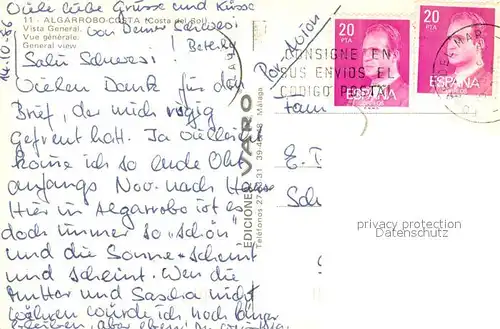 Viele liebe Grüsse und Küsse
von Deiner Schwesi
11 - ALGARROBO-COSTA (Costa del Sol)
Vista General.
Vue générale.
General view
14-10-86
Salü Schwesi!
Vielen Dank für den
Brief, der mich riesig
gefreut hatt. Ja vielleicht
komme ich so ende Okt.
anfangs Nov. nach Hause
Hier in Algarrobo ist es
doch immer so "schön"
und die Sonne scheint
und scheint. Wen die
Mutter und Sascha nicht
wären würde ich noch länger
bleiben, aber eben!
Por avion
EDICIONES VARO
Málaga
20
PTA
ESPAÑA
20
PTA
ESPAÑA
CONSIGNE EN
SUS ENVIOS EL
CODIGO POSTAL
Fam
E. T
Sch
privacy protection
www.ak-ansichtskarten.de